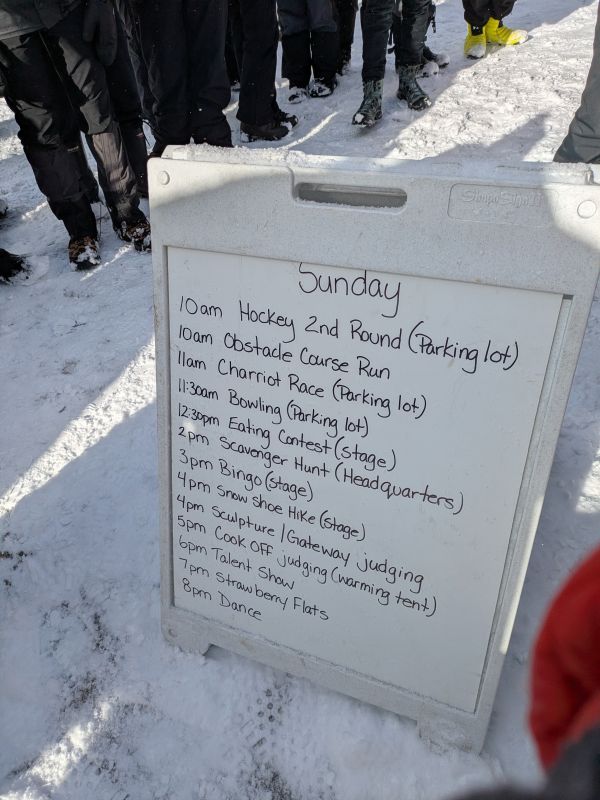 Sunday
10am Hockey 2nd Round (Parking lot)
10am Obstacle Course Run
11am Charriot Race (Parking lot)
11:30am Bowling (Parking lot)
12:30pm Eating Contest (stage)
2pm Scavenger Hunt (Headquarters)
3pm Bingo (stage)
4pm Snow Shoe Hike (stage)
4pm Sculpture / Gateway judging
5pm Cook Off judging (warming tent)
6pm Talent Show
7pm Strawberry Flats
8pm Dance